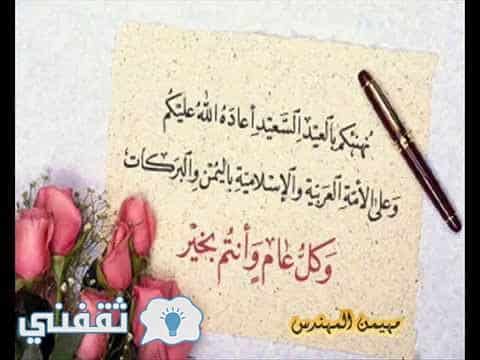 نُهَنِئُكُم بِالعِيْدِ السَّعِيْدِ أعادَهُ اللهُ عَلَيْكُم
وَعَلى الأمَّةِ العَرَبيَّةِ وَالإسْلاميَّةِ بِاليُمْنِ وَالبَرَكاتْ
وَكُلُّ عَامٍ وَأَنتُمْ بِخَيْرْ
مهيمن المهندس
ثقفني